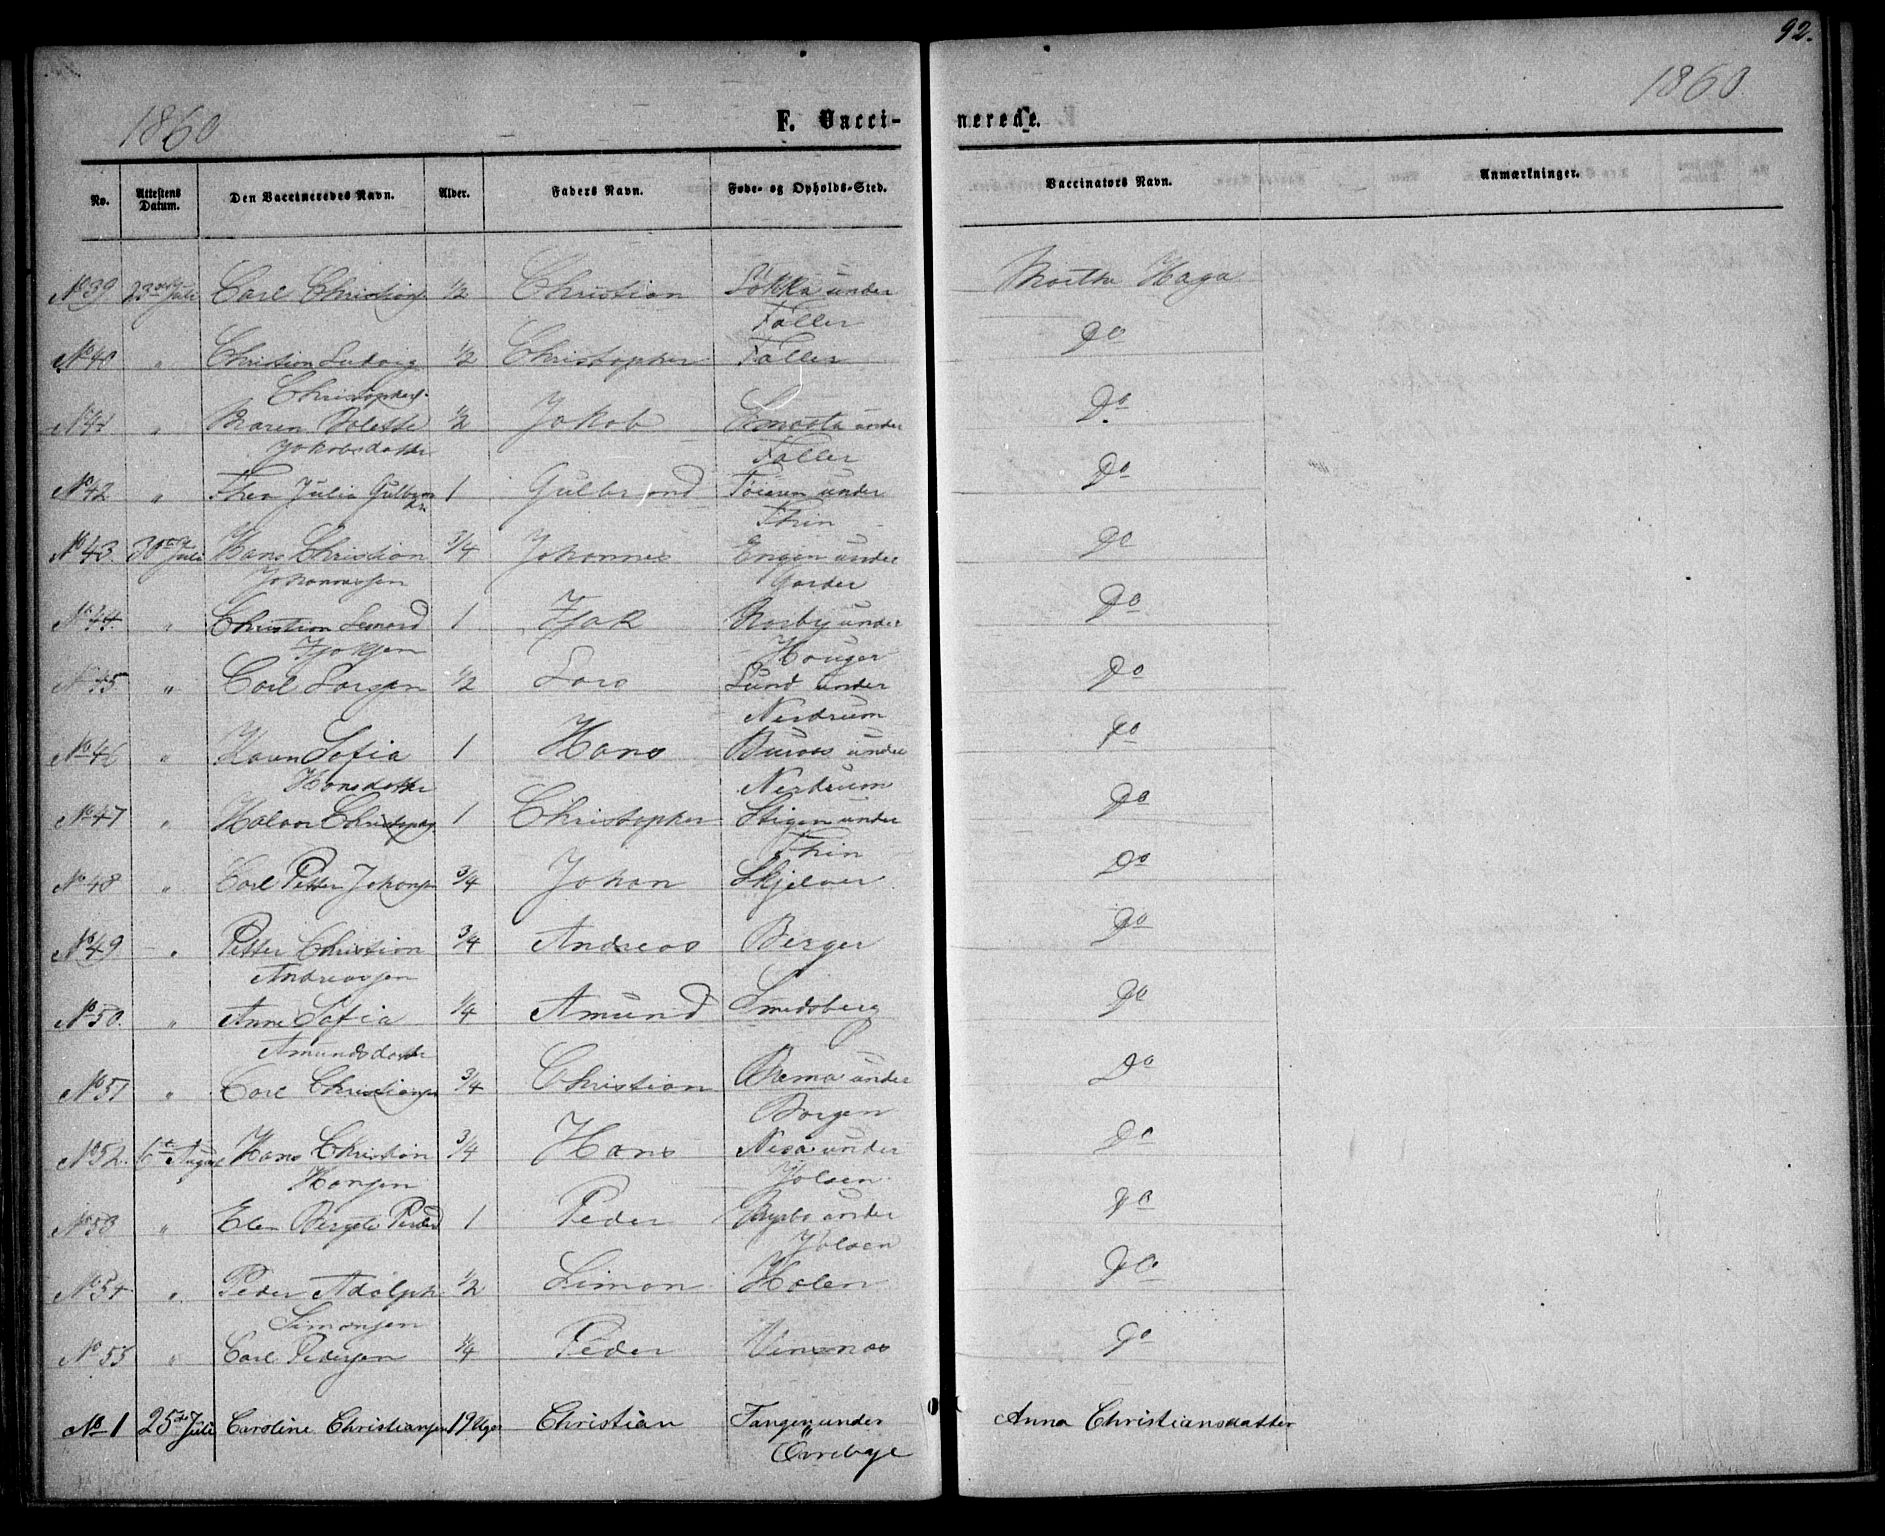 92.
1860
1860
F. Vacci-
nerede.
No.
Attestens Datum.
Den Vaccineredes Navn.
Alder.
Faders Navn.
Føde- og Opholds-Sted.
Vaccinators Navn.
Anmærkninger.
No 39 23de Juli Carl Christians ½ Christian Løkka under Marthe Haga
Faller
No 40 " Christian Ludvig ½ Christopher Faller Do
Christophers.
No 41 " Maren Oolette ½ Jakob under Do
Jakobsdatter Faller
No 42 " Thea Julia Gulbrands 1 Gulbrand under Do
Thin
No 43. 30te Juli Hans Christian ¾ Johannes Engen under Do
Johannesen Garder
No 44. " Christian 1 under Do
Houger
No 45 " Carl Larsen ½ Lars Lund under Do
Nerdrum
No 46 " Karen Sofia 1 Hans under Do
Hansdatter Nerdrum
No 47 " Halvor Christophers 1 Christopher Stigen under Do
Thin
No 48 " Carl Petter Johansen ¾ Johan Skjelver Do
No 49 " Petter Christian ¾ Andreas Berger Do
Andreassen
No 50. " Anne Sofia ¼ Amund Smedsberg Do
Amundsdatter
No 51 " Carl Christiansen ¾ Christian under Do
Borgen
No 52. 6te August Hans Christian ¾ Hans under Do
Hansen Jølsen
No 53 " Elen Bergete Pedersd 1 Peder under Do
Jølsen
No 54 " Peder Adolph ½ Simon Holen Do
Simonsen
No 55 " Carl Pedersen ¼ Peder Vinsnæs Do
No 1 25de Juli Caroline Christiansen 19 Uger Christian Tangen under Anna Christiansdatter
Øvrebye